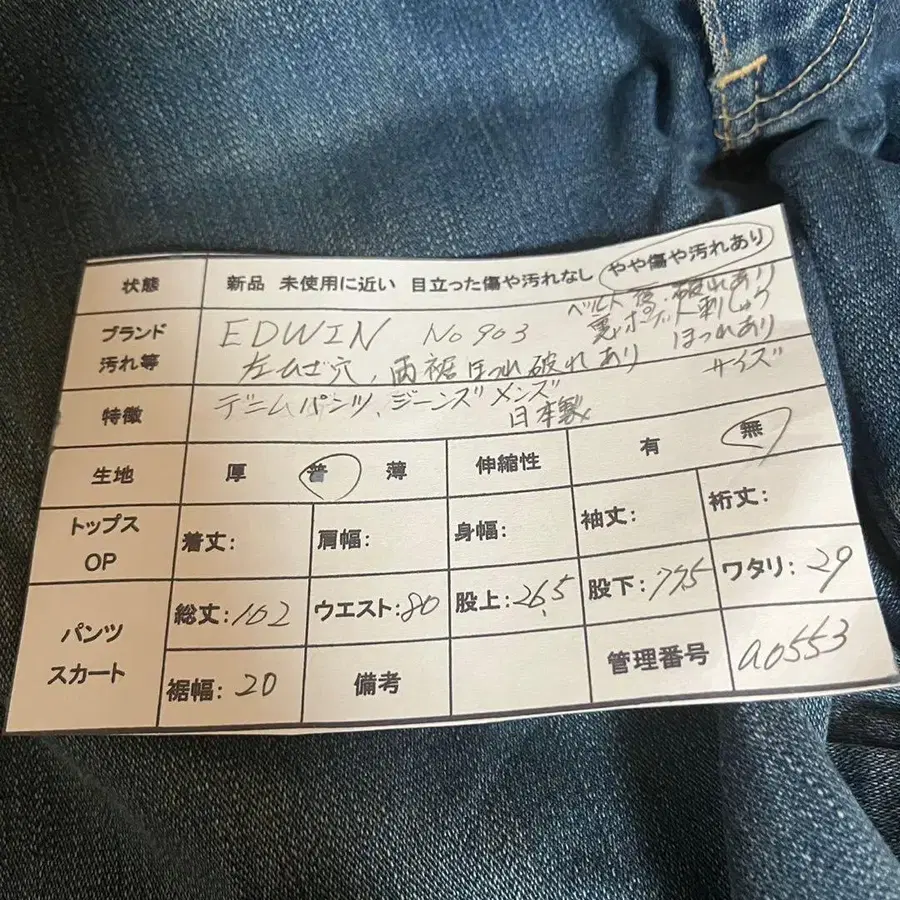 状態 新品 未使用に近い 目立った傷や汚れなし やや傷や汚れあり
ブランド EDWIN No 903 ベルト 破れあり
裏 ポケット 刺しゅう
汚れ等 左ひざ穴、両裾ほつれ破れあり ほつれあり
特徴 デニムパンツ、ジーンズ メンズ サイズ
日本製
生地 厚 普 薄 伸縮性 有 無
トップス OP 着丈: 肩幅: 身幅: 袖丈: 裄丈:
パンツ スカート 総丈:102 ウエスト:80 股上:26.5 股下:77.5 ワタリ:29
裾幅:20 備考 管理番号 a0553